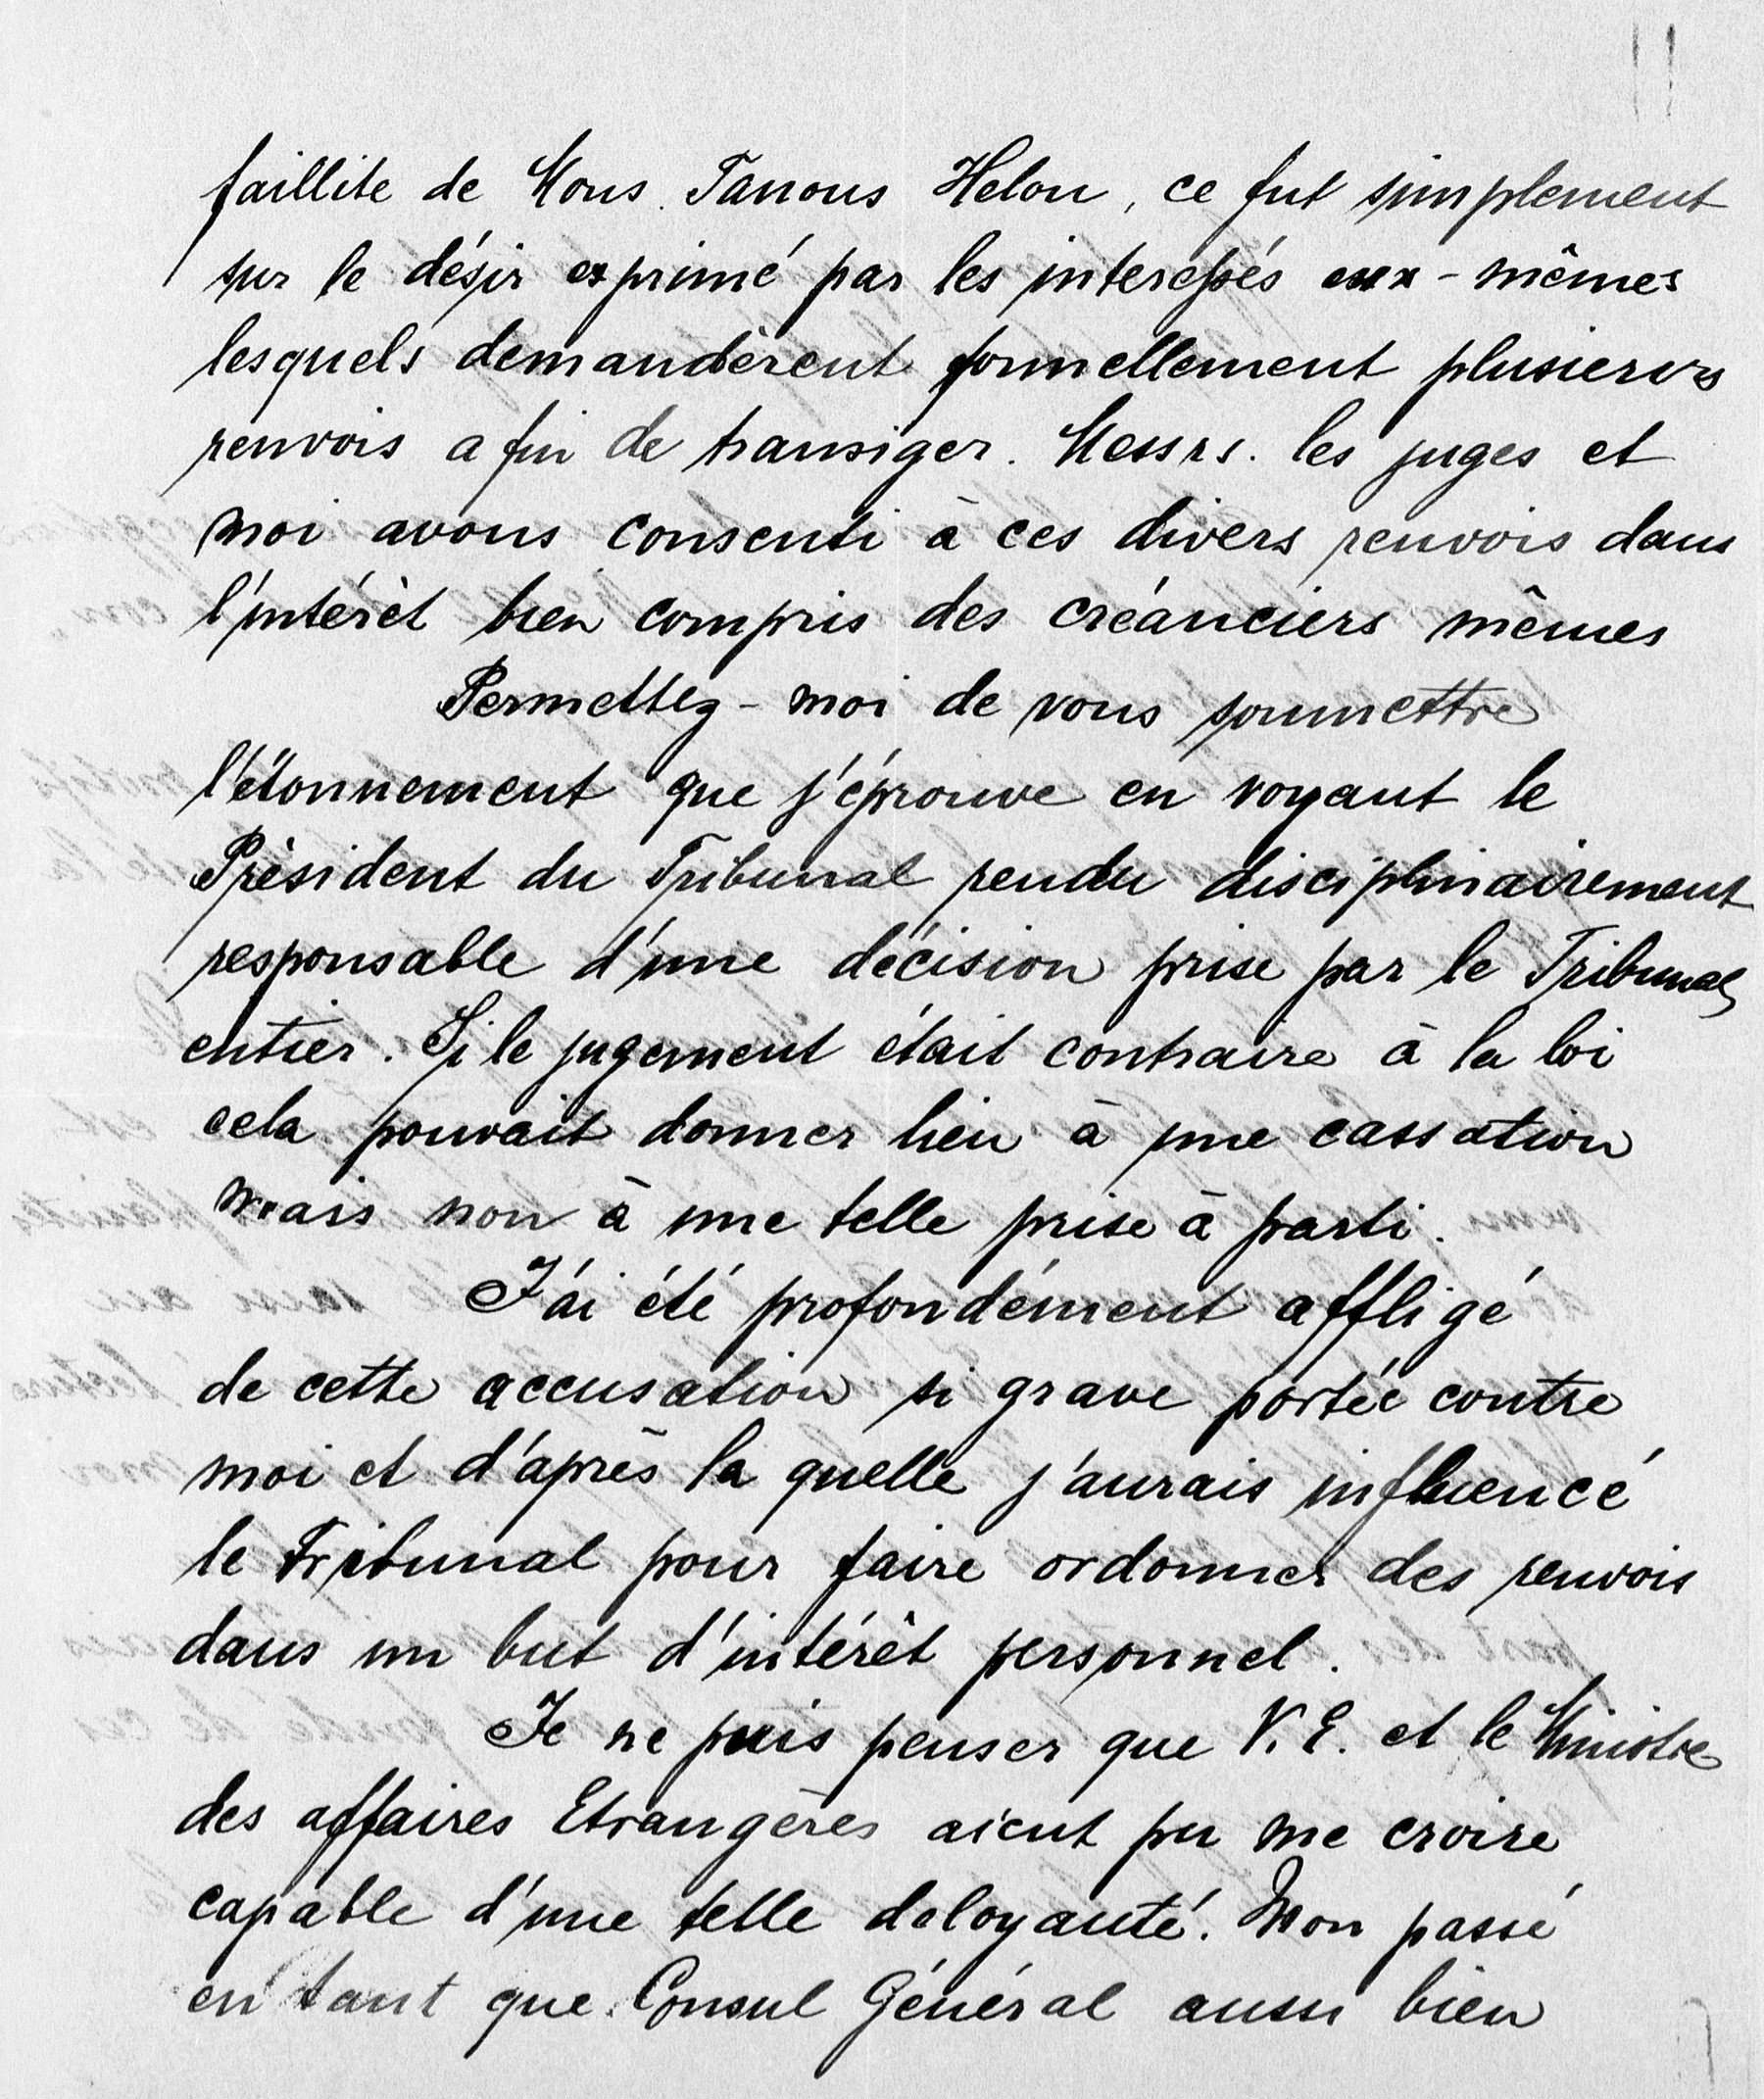 faillite de Mons. Tanous Helou, ce fut simplement
sur le désir exprimé par les interessés eux-mêmes
lesquels demandèrent formellement plusieurs
renvois a fin de transiger. Messrs. les juges et
moi avons consenti à ces divers renvois dans
l'intérêt bien compris des créanciers mêmes
Permettez-moi de vous soumettre
l'étonnement que j'éprouve en voyant le
Président du Tribunal rendu disciplinairement
responsable d'une décision prise par le Tribunal
entier. Si le jugement était contraire à la loi
cela pouvait donner lieu à une cassation
mais non à une telle prise à parti.
J'ai été profondément affligé
de cette accusation si grave portée contre
moi et d'après la quelle j'aurais influencé
le Tribunal pour faire ordonner des renvois
dans un but d'intérêt personnel.
Je ne puis penser que V.E. et le Ministre
des affaires Etrangères aient pu me croire
capable d'une telle deloyauté. Mon passé
en tant que Consul Général aussi bien